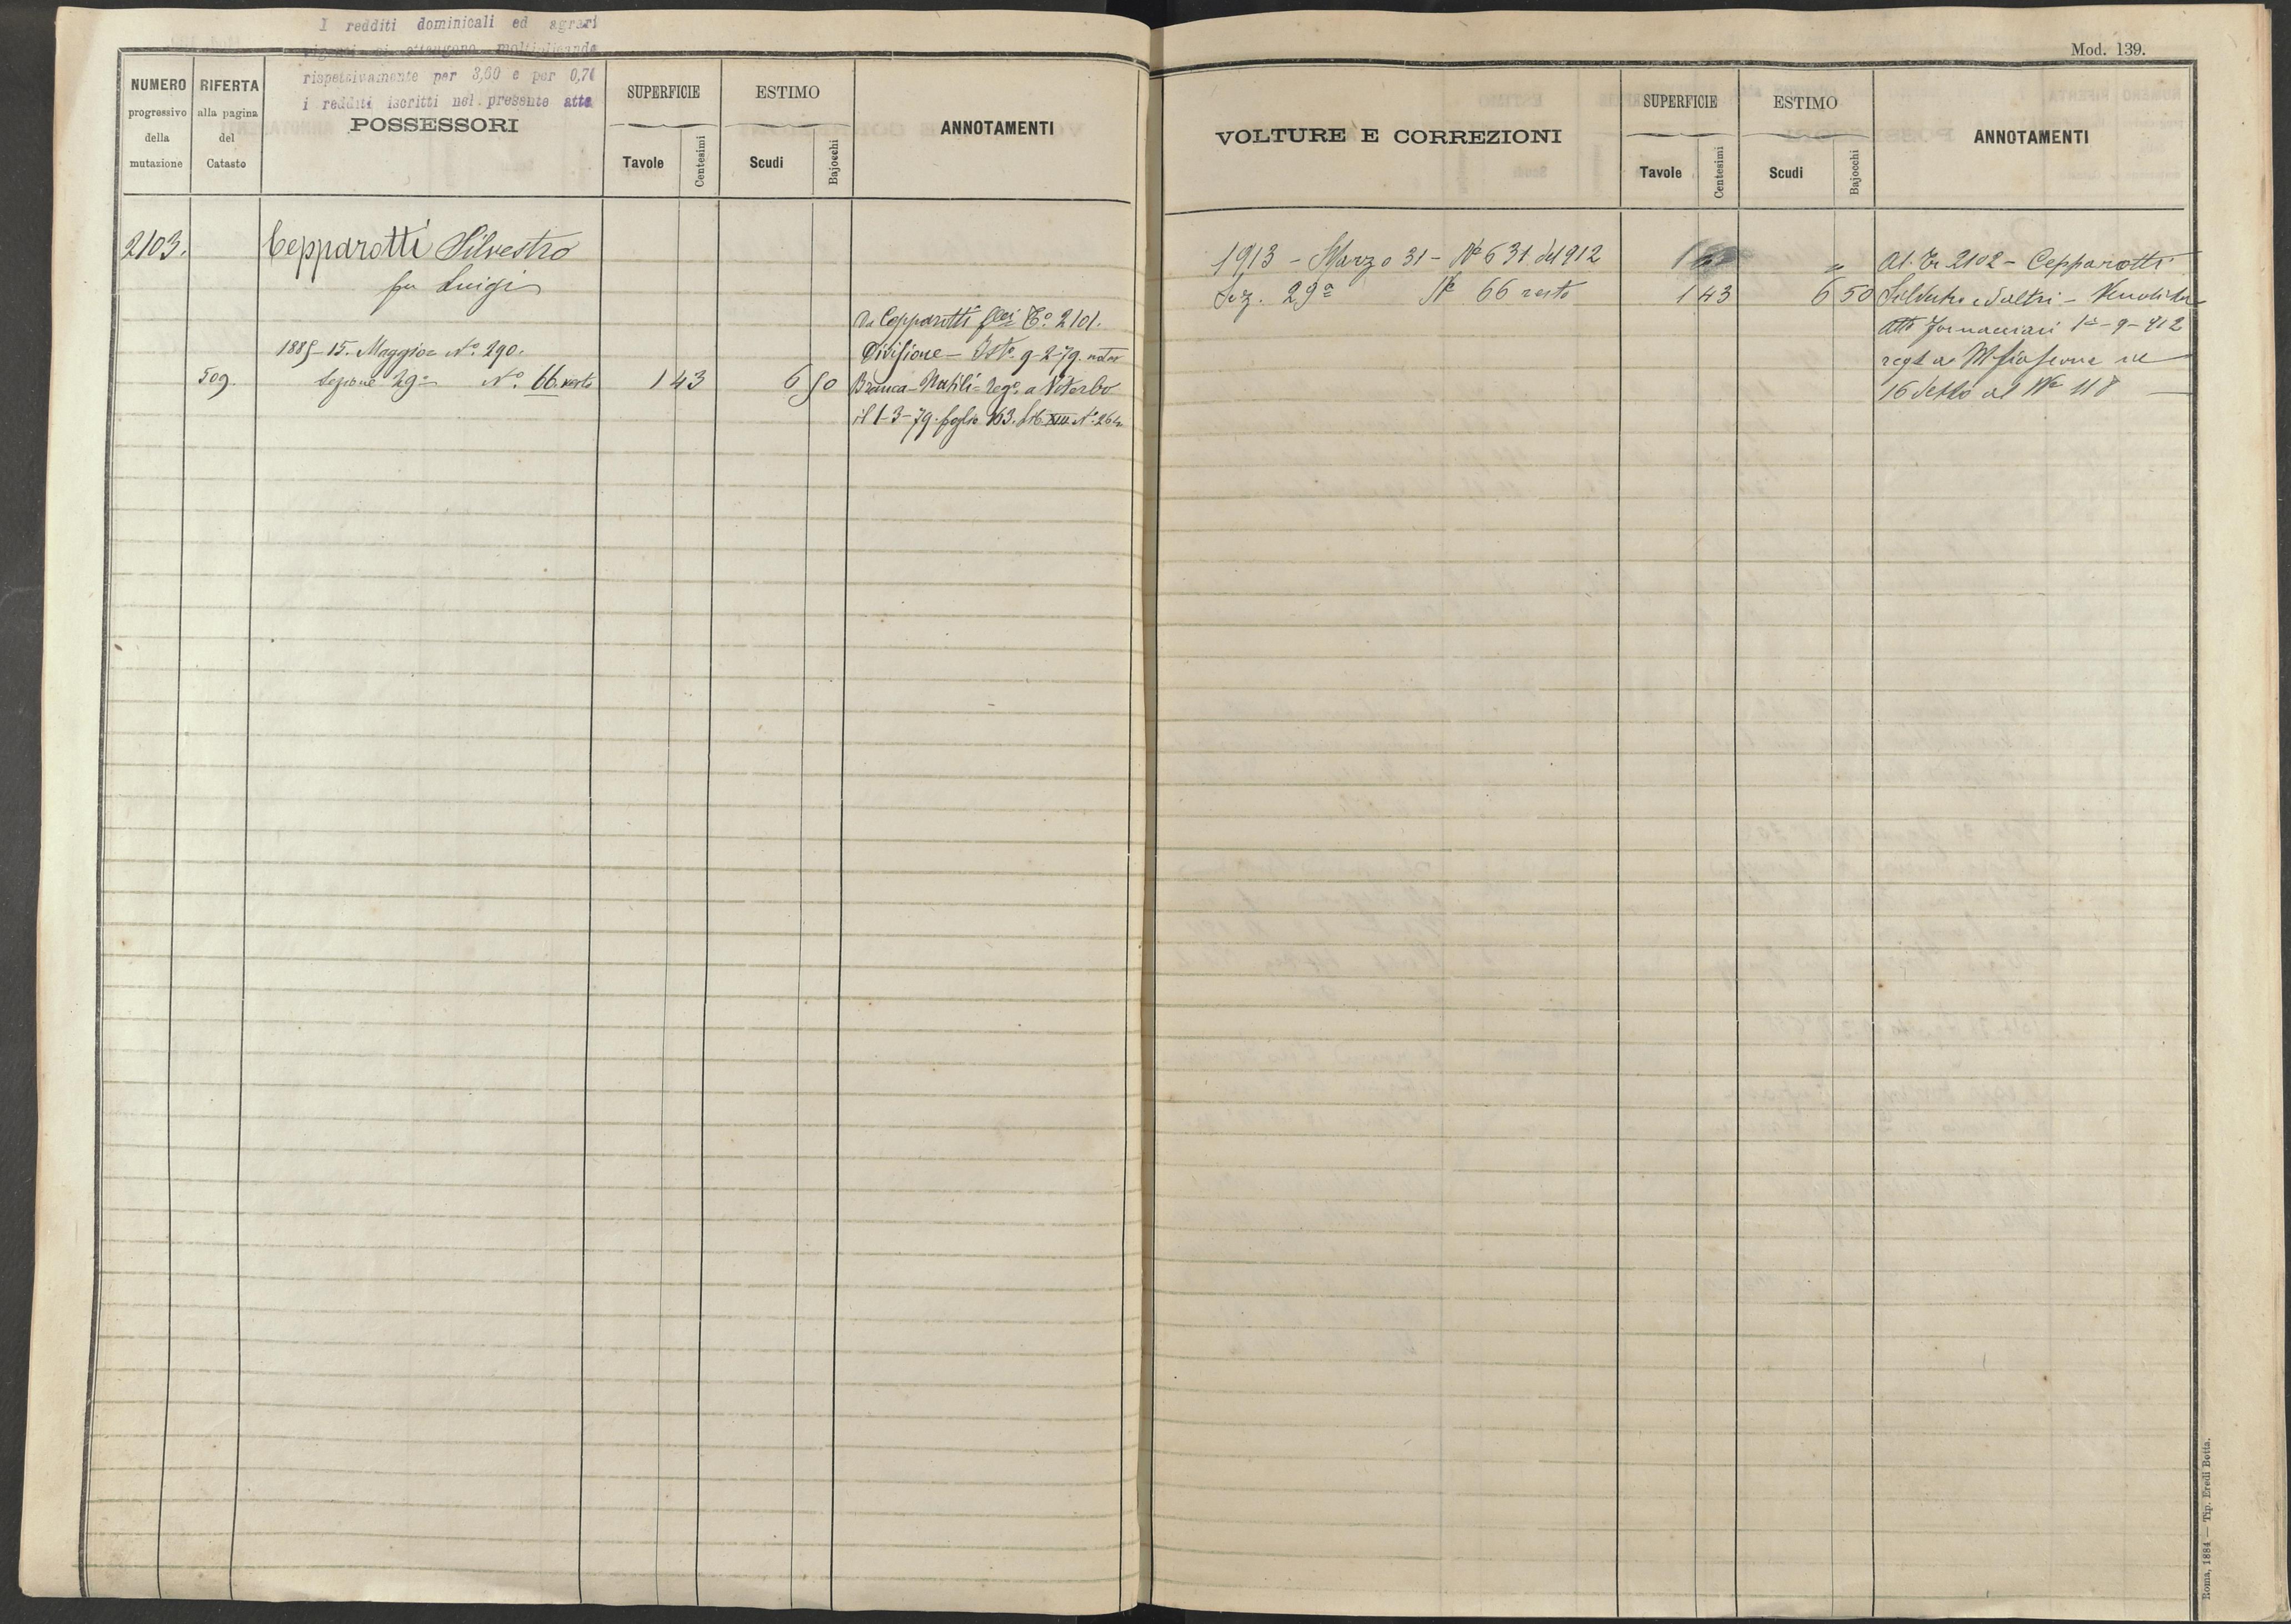 I redditi dominicali ed agrari
vigenti si ottengono moltiplicando
rispetsivamente per 3,60 e per
i redditi iscritti nel presente atto
NUMERO
progressivo
della
mutazione
RIFERTA
alla pagina
del
Catasto
POSSESSORI
SUPERFICIE
Tavole
Centesimi
ESTIMO
Scudi
Bajocchi
ANNOTAMENTI
2103. Cepparotti Silvestro
fu Luigi
1885-15. Maggio= Nº 290.
509. Sezione 29ª Nº. 66 resto 1 43 6 50
Da Cepparotti Tº. 2101.
Divisione - Istº. 9-2-79.
Branca-Natili= Regº. a Viterbo
il 1-3-79. foglio 163. Lib. XIII Nº.
Mod. 139.
VOLTURE E CORREZIONI
SUPERFICIE
Tavole
Centesimi
ESTIMO
Scudi
Bajocchi
ANNOTAMENTI
1913 - Marzo 31 - Nº 631 del 912
Sez. 29ª Nº 66 resto 1 43 6 50
Al. Tr 2102 - Cepparotti
Silvestro e altri -
Atto Fornacciari 1º-9-912
16 detto al Nº 118
Roma, 1884 — Tip. Eredi Botta.